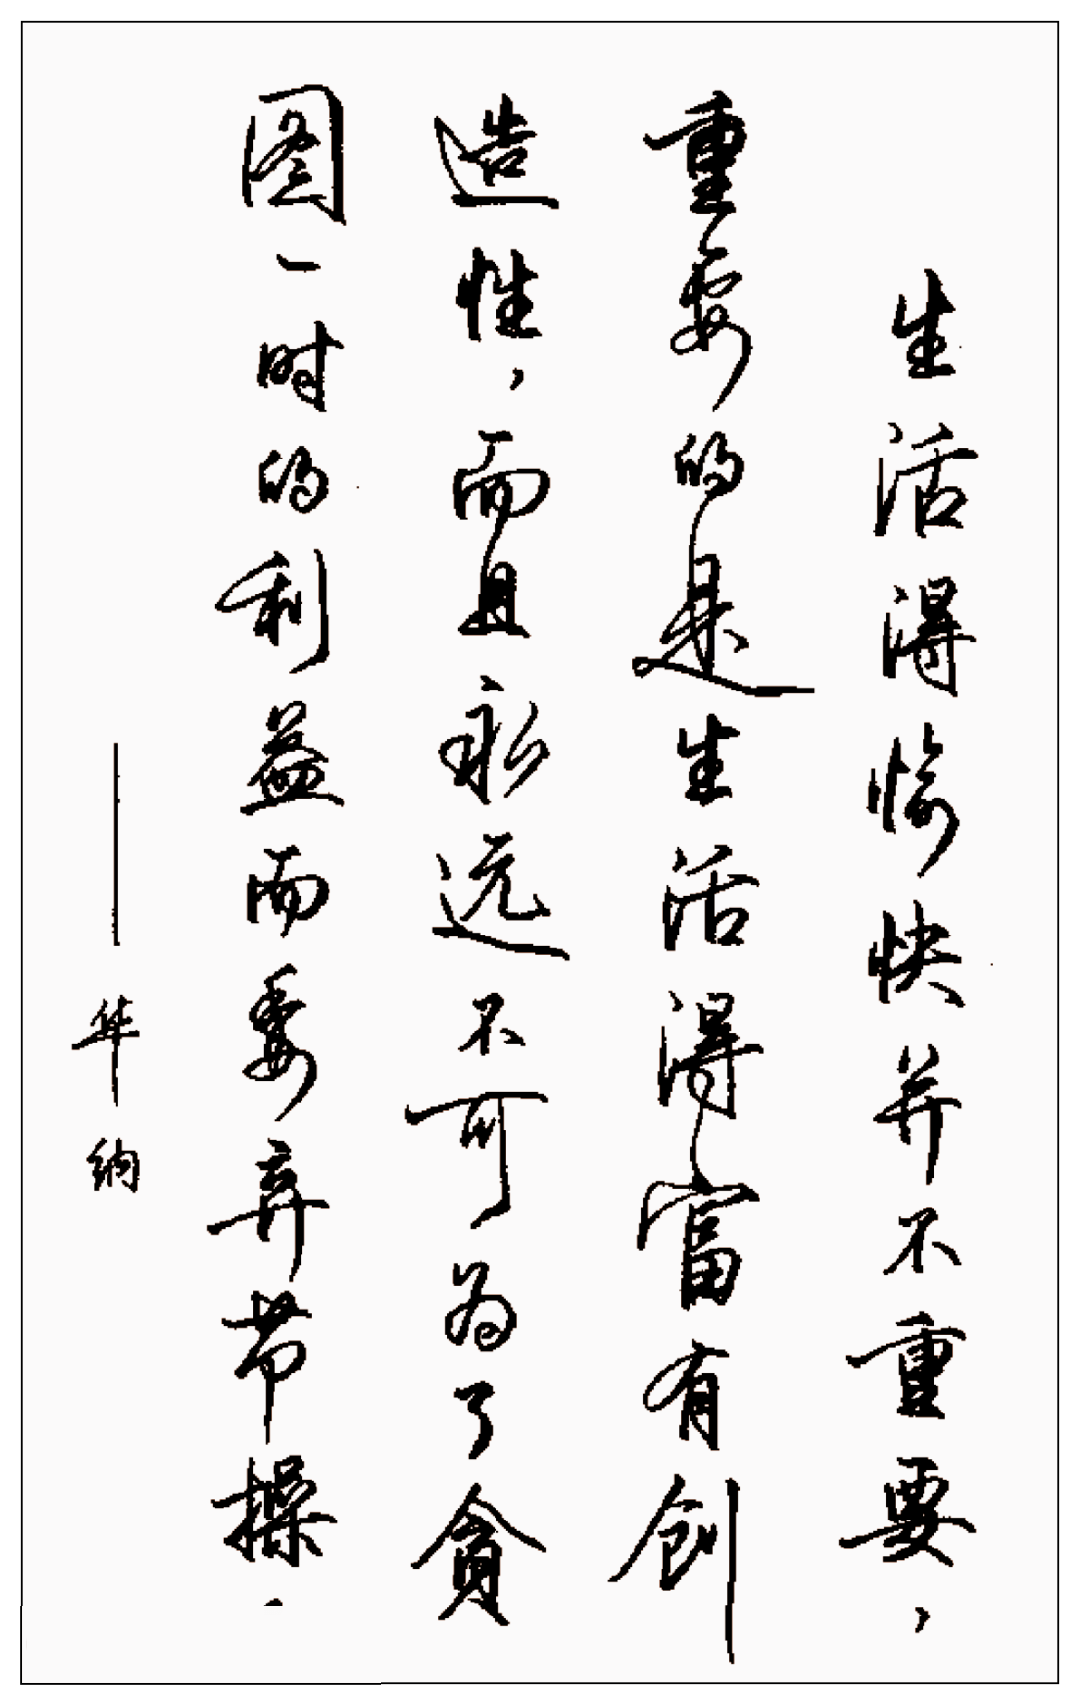 生活得愉快并不重要，
重要的是生活得富有创
造性，而且永远不可为了贪
图一时的利益而委弃节操.
——华纳